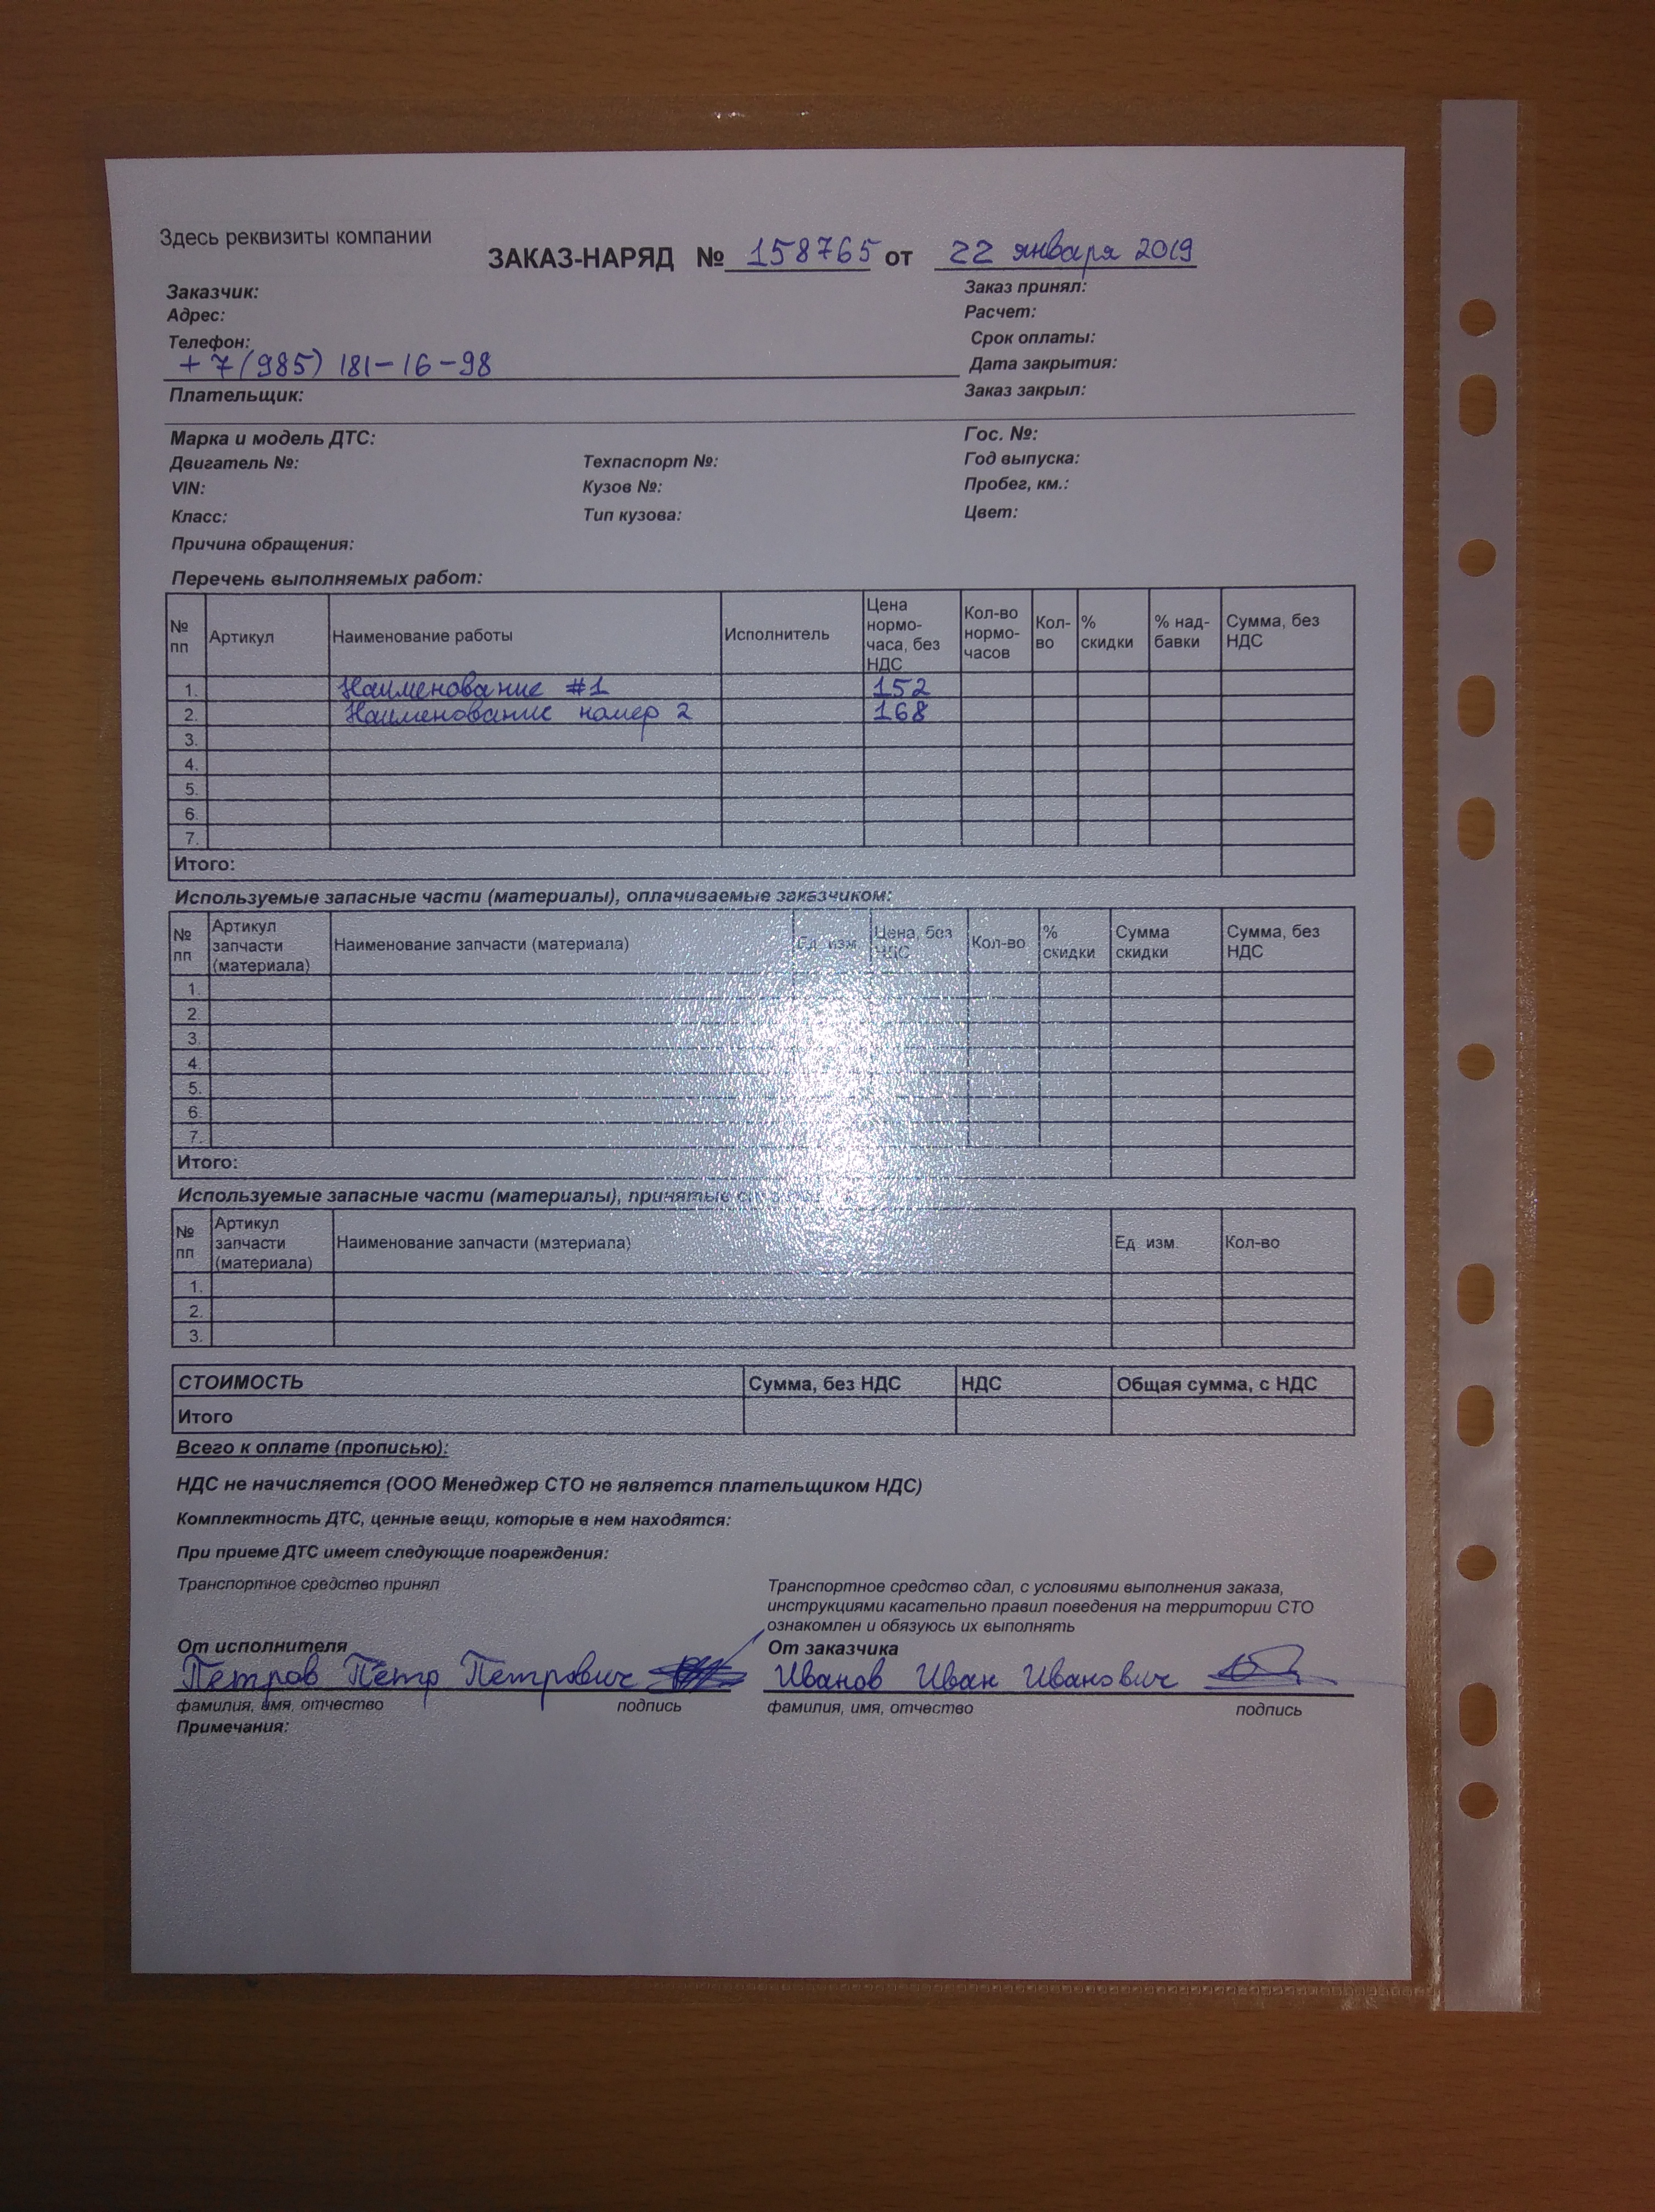 Здесь реквизиты компании
ЗАКАЗ-НАРЯД № 158765 от 22 января 2019
Заказчик: Заказ принял:
Адрес: Расчет:
Телефон: Срок оплаты:
+7(985) 181-16-98 Дата закрытия:
Плательщик: Заказ закрыл:
Марка и модель ДТС: Гос. №:
Двигатель №: Техпаспорт №: Год выпуска:
VIN: Кузов №: Пробег, км.:
Класс: Тип кузова: Цвет:
Причина обращения:
Перечень выполняемых работ:
№ пп Артикул Наименование работы Исполнитель Цена нормо-часа, без НДС Кол-во нормо-часов Кол-во % скидки % над-бавки Сумма, без НДС
1. Наименование #1 152
2. Наименование номер 2 168
3.
4.
5.
6.
7.
Итого:
Используемые запасные части (материалы), оплачиваемые заказчиком:
№ пп Артикул запчасти (материала) Наименование запчасти (материала) Ед. изм. Цена, без НДС Кол-во % скидки Сумма скидки Сумма, без НДС
1.
2.
3.
4.
5.
6.
7.
Итого:
Используемые запасные части (материалы), принятые
№ пп Артикул запчасти (материала) Наименование запчасти (материала) Ед. изм. Кол-во
1.
2.
3.
СТОИМОСТЬ Сумма, без НДС НДС Общая сумма, с НДС
Итого
Всего к оплате (прописью):
НДС не начисляется (ООО Менеджер СТО не является плательщиком НДС)
Комплектность ДТС, ценные вещи, которые в нем находятся:
При приеме ДТС имеет следующие повреждения:
Транспортное средство принял
Транспортное средство сдал, с условиями выполнения заказа,
инструкциями касательно правил поведения на территории СТО
ознакомлен и обязуюсь их выполнять
От исполнителя От заказчика
Петров Петр Петрович Иванов Иван Иванович
фамилия, имя, отчество подпись фамилия, имя, отчество подпись
Примечания: